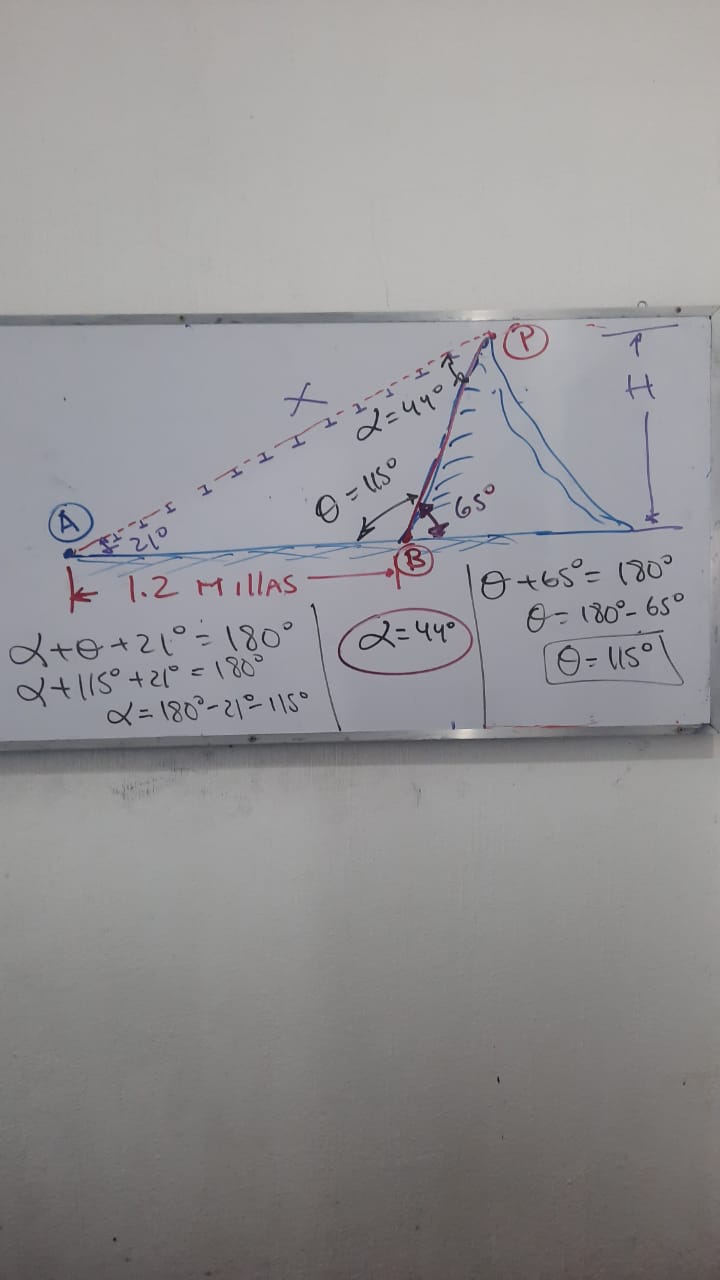 P
H
X
α=44°
θ=115°
65°
A
21°
B
1.2 MIllAS
α+θ+21°=180°
α+115°+21°=180°
α=180°-21°-115°
α=44°
θ+65°=180°
θ=180°-65°
θ=115°